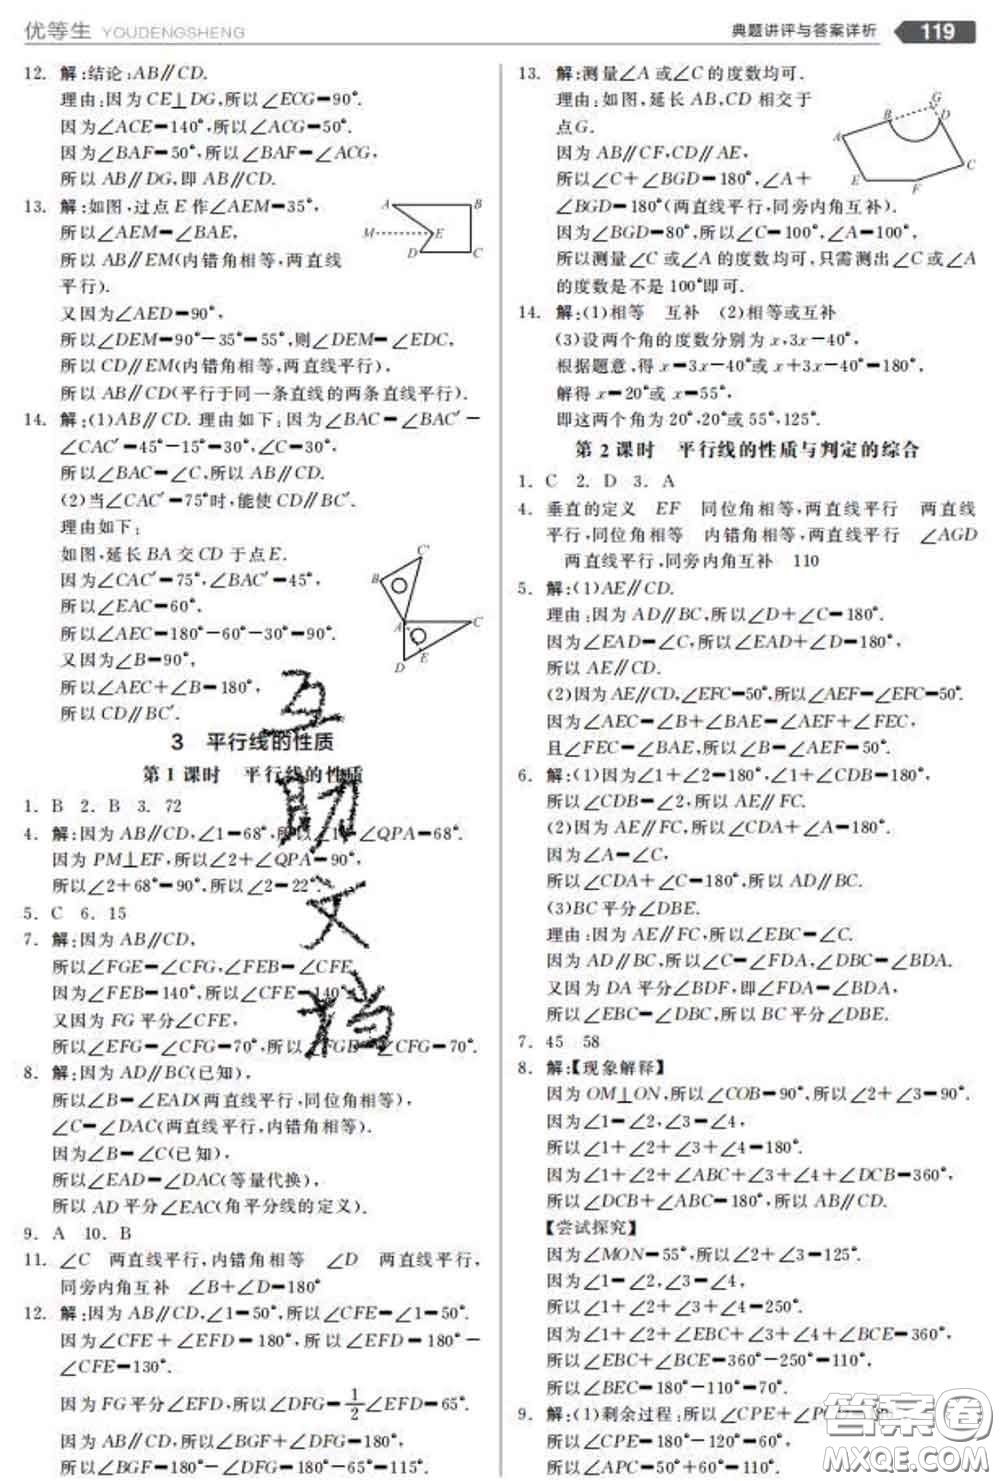 优等生 YOUDENGSHENG
典题讲评与答案详析 119
12. 解:结论:AB∥CD.
理由:因为 CE⊥DG,所以∠ECG=90°.
因为∠ACE=140°,所以∠ACG=50°.
因为∠BAF=50°,所以∠BAF=∠ACG,
所以 AB∥DG,即 AB∥CD.
13. 解:如图,过点 E 作∠AEM=35°,
所以∠AEM=∠BAE,
所以 AB∥EM(内错角相等,两直线
平行).
又因为∠AED=90°,
所以∠DEM=90°-35°=55°,则∠DEM=∠EDC,
所以 CD∥EM(内错角相等,两直线平行),
所以 AB∥CD(平行于同一条直线的两条直线平行).
A B
M E
D C
14. 解:(1)AB∥CD. 理由如下:因为∠BAC=∠BAC′-
∠CAC′=45°-15°=30°,∠C=30°.
所以∠BAC=∠C,所以 AB∥CD.
(2)当∠CAC′=75°时,能使 CD∥BC′.
理由如下:
如图,延长 BA 交 CD 于点 E.
因为∠CAC′=75°,∠BAC′=45°,
所以∠EAC=60°.
所以∠AEC=180°-60°-30°=90°.
又因为∠B=90°,
所以∠AEC+∠B=180°,
所以 CD∥BC′.
C′
B
A C
D E
3 平行线的性质
第 1 课时 平行线的性质
1. B 2. B 3. 72
4. 解:因为 AB∥CD,∠1=68°,所以∠1=∠QPA=68°.
因为 PM⊥EF,所以∠2+∠QPA=90°,
所以∠2+68°=90°,所以∠2=22°.
5. C 6. 15
7. 解:因为 AB∥CD,
所以∠FGE=∠CFG,∠FEB=∠CFE.
因为∠FEB=140°,所以∠CFE=140°.
又因为 FG 平分∠CFE,
所以∠EFG=∠CFG=70°,所以∠FGE=∠CFG=70°.
8. 解:因为 AD∥BC(已知),
所以∠B=∠EAD(两直线平行,同位角相等),
∠C=∠DAC(两直线平行,内错角相等).
因为∠B=∠C(已知),
所以∠EAD=∠DAC(等量代换),
所以 AD 平分∠EAC(角平分线的定义).
9. A 10. B
11. ∠C 两直线平行,内错角相等 ∠D 两直线平行,
同旁内角互补 ∠B+∠D=180°
12. 解:因为 AB∥CD,∠1=50°,所以∠CFE=∠1=50°.
因为∠CFE+∠EFD=180°,所以∠EFD=180°-
∠CFE=130°.
因为 FG 平分∠EFD,所以∠DFG=1/2∠EFD=65°.
因为 AB∥CD,所以∠BGF+∠DFG=180°,
所以∠BGF=180°-∠DFG=180°-65°=115°.
互助文档
13. 解:测量∠A 或∠C 的度数均可.
理由:如图,延长 AB,CD 相交于
点 G.
因为 AB∥CF,CD∥AE,
所以∠C+∠BGD=180°,∠A+
∠BGD=180°(两直线平行,同旁内角互补).
因为∠BGD=80°,所以∠C=100°,∠A=100°.
所以测量∠C 或∠A 的度数均可,只需测出∠C 或∠A
的度数是不是 100°即可.
G
B D
A
C
E F
14. 解:(1)相等 互补 (2)相等或互补
(3)设两个角的度数分别为 x,3x-40°,
根据题意,得 x=3x-40°或 x+3x-40°=180°,
解得 x=20°或 x=55°,
即这两个角为 20°,20°或 55°,125°.
第 2 课时 平行线的性质与判定的综合
1. C 2. D 3. A
4. 垂直的定义 EF 同位角相等,两直线平行 两直线
平行,同位角相等 内错角相等,两直线平行 ∠AGD
两直线平行,同旁内角互补 110
5. 解:(1)AE∥CD.
理由:因为 AD∥BC,所以∠D+∠C=180°.
因为∠EAD=∠C,所以∠EAD+∠D=180°,
所以 AE∥CD.
(2)因为 AE∥CD,∠EFC=50°,所以∠AEF=∠EFC=50°.
因为∠AEC=∠B+∠BAE=∠AEF+∠FEC,
且∠FEC=∠BAE,所以∠B=∠AEF=50°.
6. 解:(1)因为∠1+∠2=180°,∠1+∠CDB=180°,
所以∠CDB=∠2,所以 AE∥FC.
(2)因为 AE∥FC,所以∠CDA+∠A=180°.
因为∠A=∠C,
所以∠CDA+∠C=180°,所以 AD∥BC.
(3)BC 平分∠DBE.
理由:因为 AE∥FC,所以∠EBC=∠C.
因为 AD∥BC,所以∠C=∠FDA,∠DBC=∠BDA.
又因为 DA 平分∠BDF,即∠FDA=∠BDA,
所以∠EBC=∠DBC,所以 BC 平分∠DBE.
7. 45 58
8. 解:【现象解释】
因为 OM⊥ON,所以∠COB=90°,所以∠2+∠3=90°.
因为∠1=∠2,∠3=∠4,
所以∠1+∠2+∠3+∠4=180°.
因为∠1+∠2+∠ABC+∠3+∠4+∠DCB=360°,
所以∠DCB+∠ABC=180°,所以 AB∥CD.
【尝试探究】
因为∠MON=55°,所以∠2+∠3=125°.
因为∠1=∠2,∠3=∠4,
所以∠1+∠2+∠3+∠4=250°.
因为∠1+∠2+∠EBC+∠3+∠4+∠BCE=360°,
所以∠EBC+∠BCE=360°-250°=110°,
所以∠BEC=180°-110°=70°.
9. 解:(1)剩余过程:所以∠CPE+∠P
所以∠CPE=180°-120°=60°,
所以∠APC=∠APE+∠CPE=50°+60°
答案圈
MXQE.COM